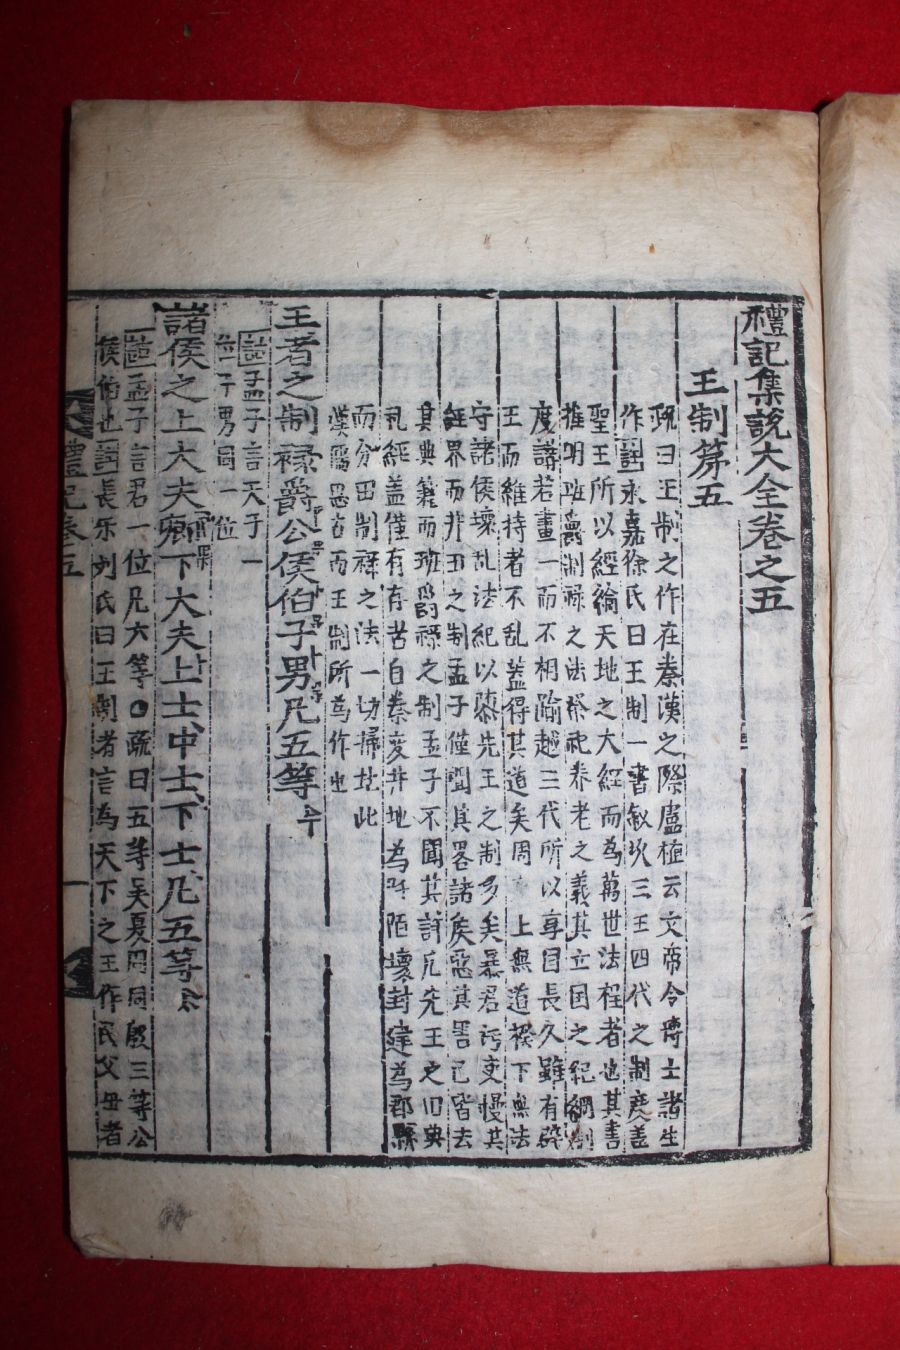 禮記集說大全卷之五
王制第五
疏曰王制之作在秦漢之際盧植云文帝令博士諸生
作講永嘉徐氏曰王制一書叙次三王四代之制度盖
聖王所以經綸天地之大經而為萬世法程者也其書
推明班爵制祿之法祭祀養老之義其立国之紀綱制
度講若畫一而不相踰越三代所以享国長久雖有
王而維持者不乱盖得其道矣周上無道揆下無法
守諸侯壞乱法紀以先王之制多矣暴君污吏慢其
経界而井田之制孟子僅聞其畧諸侯惡其害己皆去
其典籍而班爵祿之制孟子不聞其詳凢先王之旧典
礼經盖僅有存者自秦变井地為阡陌壞封建為郡縣
而分田制祿之法一切掃地此
漢儒而王制所為作也
王者之制祿爵公侯伯子男凢五等
註孟子言天子一
位子男同一位
諸侯之上大夫卿下大夫上士中士下士凢五等
孟子言君一位凢六等疏曰五等虞夏周同殷三等公
侯伯也長乐刘氏曰王制者言為天下之王作民父母者
禮記卷五
一